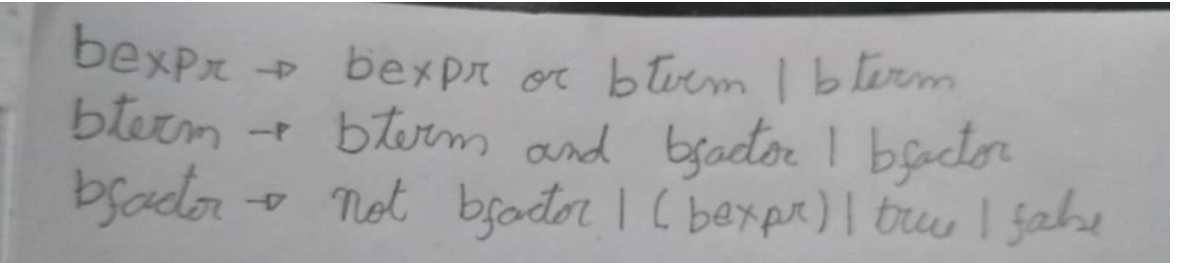 bexpr → bexpr or bterm | bterm
bterm → bterm and bfactor | bfactor
bfactor → not bfactor | (bexpr) | true | false